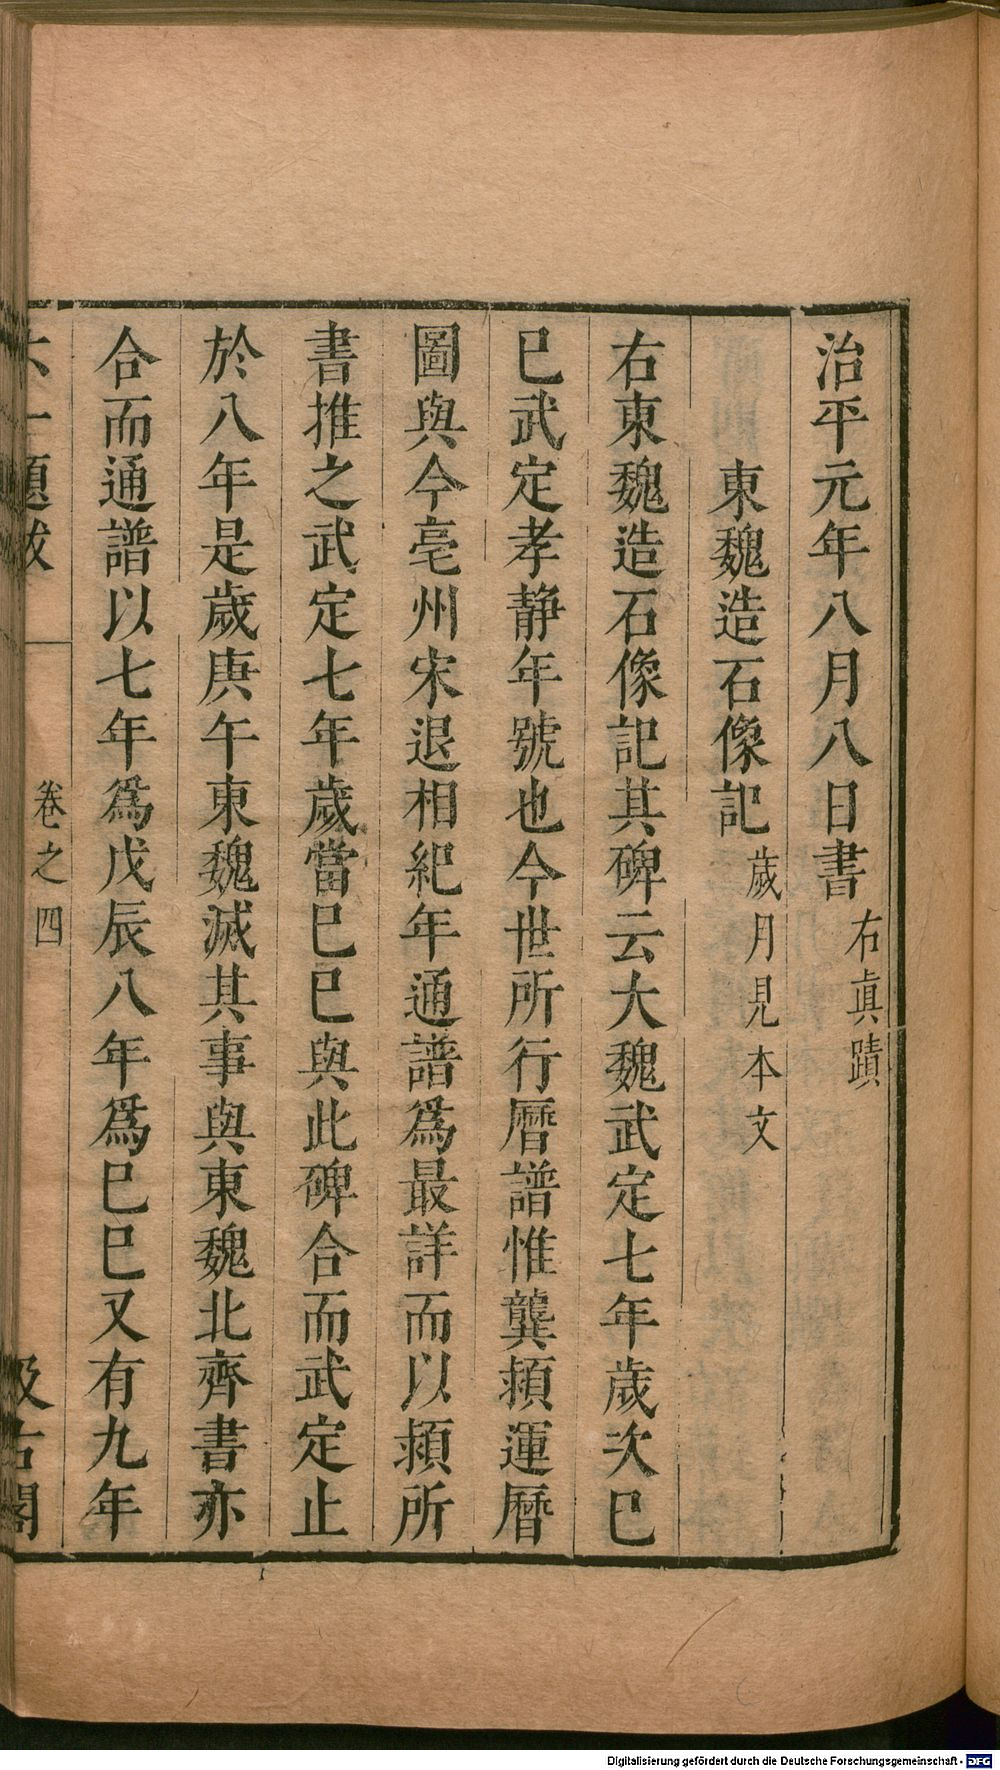 治平元年八月八日書右眞蹟
東魏造石像記歲月見本文
右東魏造石像記其碑云大魏武定七年歲次巳
巳武定孝静年號也今世所行曆譜惟龔頴運曆
圖與今亳州宋退相紀年通譜爲最詳而以頴所
書推之武定七年歲當巳巳與此碑合而武定止
於八年是歲庚午東魏滅其事與東魏北齊書亦
合而通譜以七年爲戊辰八年爲巳巳又有九年
六一題跋 卷之四 汲古閣
Digitalisierung gefördert durch die Deutsche Forschungsgemeinschaft - DFG